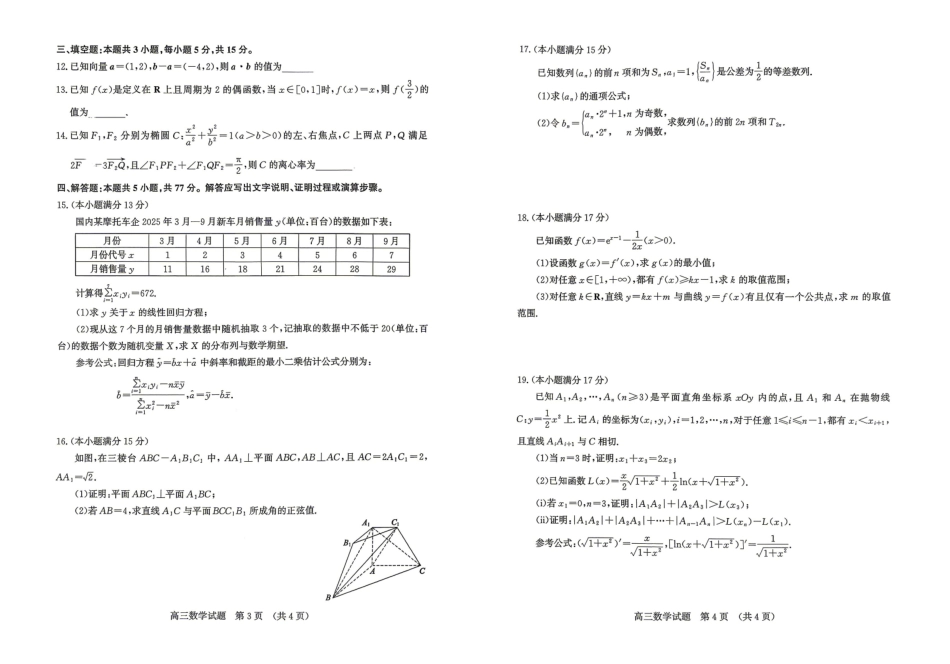 三、填空题:本题共3小题,每小题5分,共15分。
12.已知向量a=(1,2),b-a=(-4,2),则a·b的值为
13.已知f(x)是定义在R上且周期为2的偶函数,当x∈[0,1]时,f(x)=x,则f(3/2)的
值为 .
14.已知F₁,F₂分别为椭圆C:x²/a²+y²/b²=1(a>b>0)的左、右焦点,C上两点P,Q满足
2F =3F₂Q,且∠F₁PF₂+∠F₁QF₂=π/2,则C的离心率为
四、解答题:本题共5小题,共77分。解答应写出文字说明、证明过程或演算步骤。
15.(本小题满分13分)
国内某摩托车企2025年3月—9月新车月销售量y(单位:百台)的数据如下表:
月份 3月 4月 5月 6月 7月 8月 9月
月份代号x 1 2 3 4 5 6 7
月销售量y 11 16 18 21 24 28 29
计算得∑(i=1→7)xᵢyᵢ=672.
(1)求y关于x的线性回归方程;
(2)现从这7个月的月销售量数据中随机抽取3个,记抽取的数据中不低于20(单位:百
台)的数据个数为随机变量X,求X的分布列与数学期望.
参考公式:回归方程ŷ=b̂x+â中斜率和截距的最小二乘估计公式分别为:
b̂=(∑(i=1→n)xᵢyᵢ-nx̄ȳ)/(∑(i=1→n)xᵢ²-nx̄²),â=ȳ-b̂x̄.
16.(本小题满分15分)
如图,在三棱台ABC-A₁B₁C₁中,AA₁⊥平面ABC,AB⊥AC,且AC=2A₁C₁=2,
AA₁=√2.
(1)证明:平面ABC₁⊥平面A₁BC;
(2)若AB=4,求直线A₁C与平面BCC₁B₁所成角的正弦值.
A₁ C₁
B₁
A C
B
高三数学试题 第3页 (共4页)
17.(本小题满分15分)
已知数列{aₙ}的前n项和为Sₙ,a₁=1,{Sₙ/aₙ}是公差为1/2的等差数列.
(1)求{aₙ}的通项公式;
(2)令bₙ={aₙ·2ⁿ+1,n为奇数, aₙ·2ⁿ, n为偶数,求数列{bₙ}的前2n项和T₂ₙ.
18.(本小题满分17分)
已知函数f(x)=eˣ⁻¹-1/(2x)(x>0).
(1)设函数g(x)=f′(x),求g(x)的最小值;
(2)对任意x∈[1,+∞),都有f(x)≥kx-1,求k的取值范围;
(3)对任意k∈R,直线y=kx+m与曲线y=f(x)有且仅有一个公共点,求m的取值
范围.
19.(本小题满分17分)
已知A₁,A₂,⋯,Aₙ(n≥3)是平面直角坐标系xOy内的点,且A₁和Aₙ在抛物线
C:y=1/2x²上.记Aᵢ的坐标为(xᵢ,yᵢ),i=1,2,⋯,n,对于任意1≤i≤n-1,都有xᵢ<xᵢ₊₁,
且直线AᵢAᵢ₊₁与C相切.
(1)当n=3时,证明:x₁+x₃=2x₂;
(2)已知函数L(x)=x/2√(1+x²)+1/2ln(x+√(1+x²)).
(i)若x₁=0,n=3,证明:|A₁A₂|+|A₂A₃|>L(x₃);
(ii)证明:|A₁A₂|+|A₂A₃|+⋯+|Aₙ₋₁Aₙ|>L(xₙ)-L(x₁).
参考公式:(√(1+x²))′=x/√(1+x²),[ln(x+√(1+x²))]′=1/√(1+x²).
高三数学试题 第4页 (共4页)